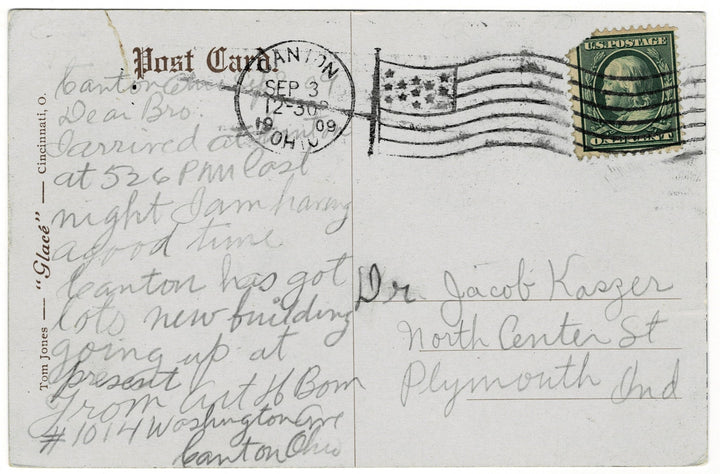 Post Card.
CANTON
SEP 3
12-30P
19 09
OHIO
U.S. POSTAGE
ONE CENT
Tom Jones — "Glacé" — Cincinnati, O.
Canton Ohio
Dear Bro.
I arrived at
at 526 PM last
night I am having
a good time
Canton has got
lots new building
going up at
present
From Art H Bom
#1014 Washington Ave
Canton Ohio
Dr Jacob Kaszer
North Center St
Plymouth Ind